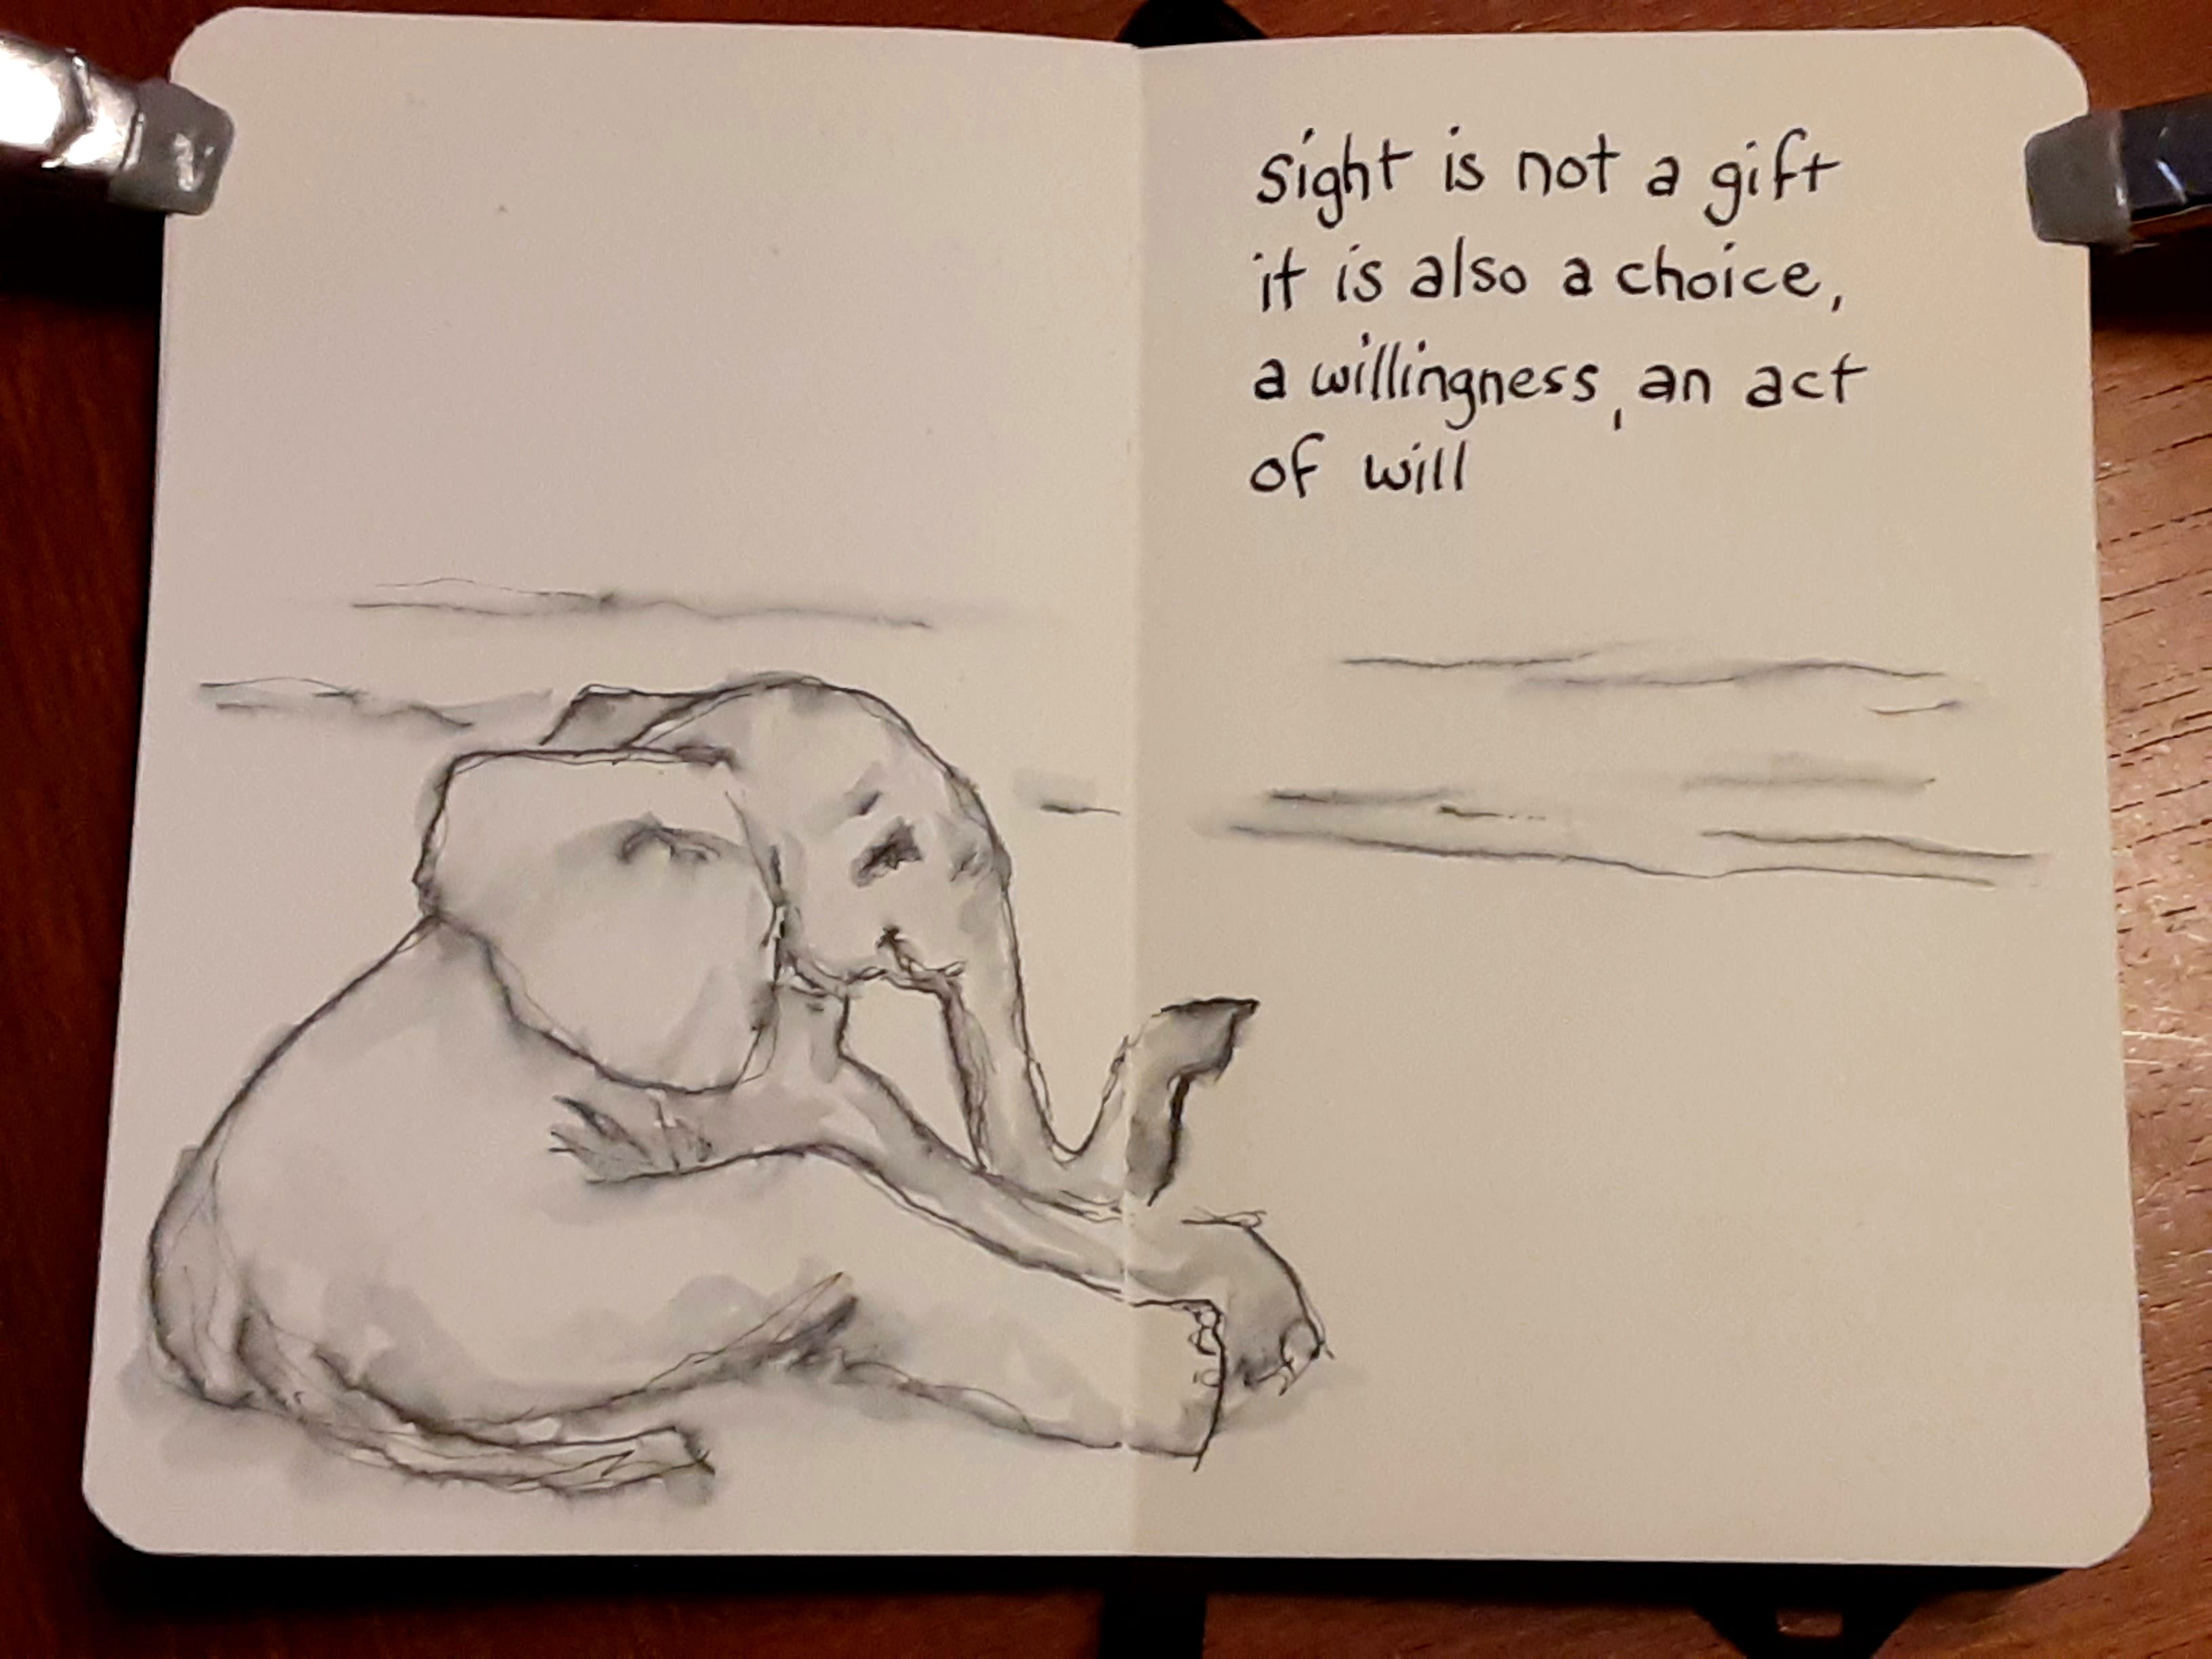 sight is not a gift
it is also a choice,
a willingness, an act
of will